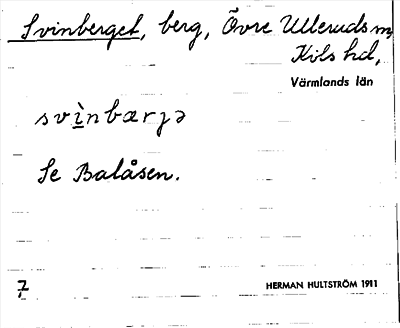 Svinberget, berg, Övre Ulleruds m,
Kils hd,
Värmlands län
svìnbærjə
Se Balåsen.
7
HERMAN HULTSTRÖM 1911